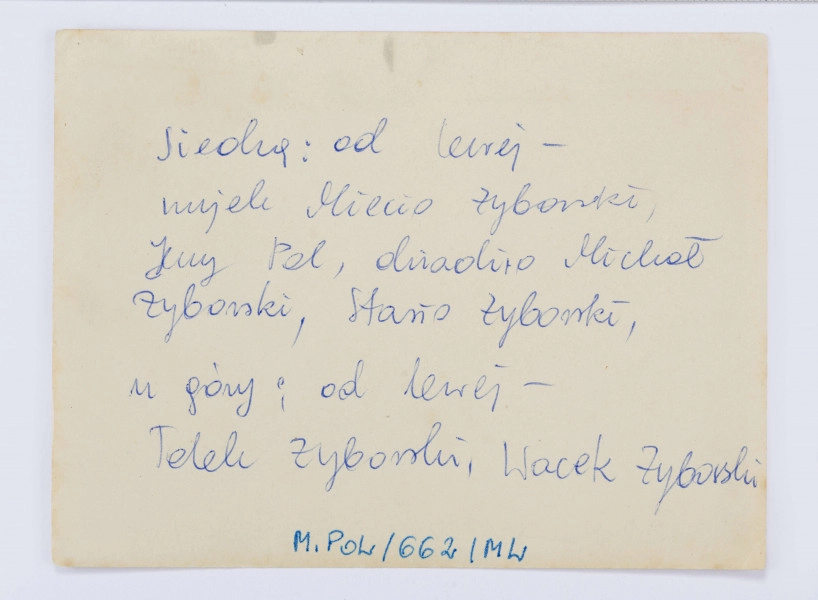 Siedzą: od lewej –
wujek Miecio Zyborski,
Jerzy Pol, dziadzio Michał
Zyborski, Stasio Zyborski,
u góry; od lewej –
Tolek Zyborski, Wacek Zyborski
M.POW/662/MW